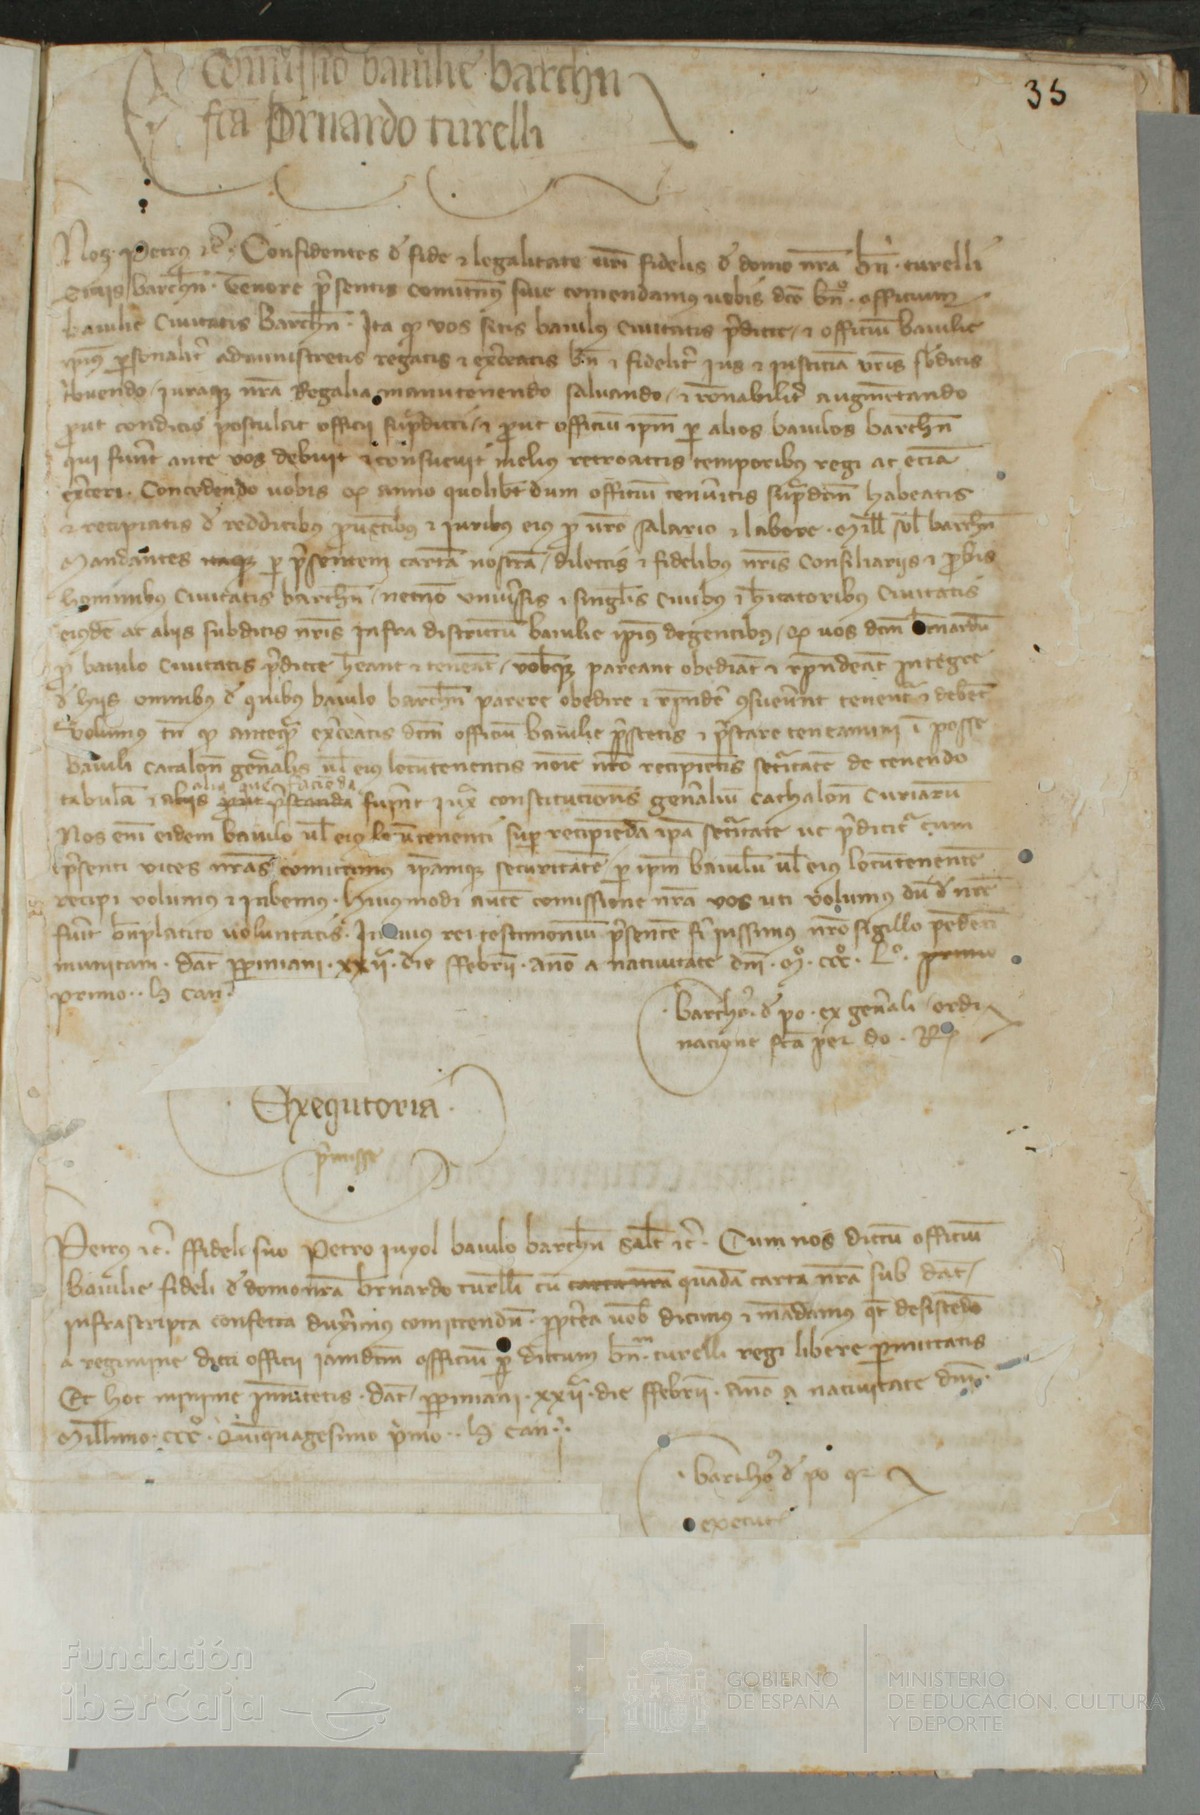 35
Comissio baiulie barchn
fca Bernardo turelli
Nos Petrus etc. Confidentes de fide et legalitate vri fidelis de domo nra bn. turelli
Civis barchn. Tenore presentis comittimus sive comendamus vobis dco bno. officium
baiulie Civitatis barchn. Ita qd vos sitis baiulus Civitatis predicte et officium baiulie
ipius personaliter administretis regatis et exerceatis bn et fideliter ius et iusticia vris subditis
tribuendo iuraque nra Regalia manutenendo salvando et ronabiliter augmentando
prout condicio postulat officii supradicti et prout officium ipm per alios baiulos barchn
qui fuerunt ante vos debuit et consuevit melius retroactis temporibus regi ac etiam
exerceri. Concedendo vobis qd anno quolibet dum officium tenueritis supradcm habeatis
et recipiatis de redditibus proventibus et iuribus eius pro vro salario et labore Mille sol barchn
Mandantes itaque per presentem cartam nostram dilectis et fidelibus nris Consiliariis et probis
hominibus Civitatis barchn necnon universis et singlis Civibus et habitatoribus Civitatis
eiusdem ac aliis subditis nris infra districtum baiulie ipius degentibus qd vos dcm bernardum
pro baiulo Civitatis predicte heant et teneant vobisque pareant obediant et rpndeant integre
de hiis omnibus de quibus baiulo barchn parere obedire et rpndere consueverunt tenentur et debent
Volumus tn qd antequam exerceatis dcm officium baiulie prestetis et prestare teneamini in posse
baiuli Catalon generalis vel eius locumtenentis noie nro recipientis securitatem de tenendo
alia que facienda
tabulam et aliis prout prestanda fuerint iuxta constitucionis generalium Cathalon Curiarum
Nos eni eidem baiulo vel eius locumtenenti super recipienda ipa securitate ut predicitur cum
presenti vices nras comittimus ipamque securitatem per ipm baiulum vel eius locumtenentem
recipi volumus et iubemus. Huiusmodi autem comissione nra vos uti volumus dum de nre
fuerit bnplacito voluntatis. In cuius rei testimonium presentem fieri iussimus nro sigillo pendenti
munitam. Dat Perpiniani xxii die ffebrii. Anno a nativitate dni. Mo. ccco. Lo. primo
primo. H Can.
Bartho. de po. ex generali ordi
nacione fca per do. R
Exequtoria
premisse
Petrus etc. ffideli suo Petro puyol baiulo barchn salt etc. Cum nos dictum officium
baiulie fideli de domo nra bernardo turelli cum carta nra quadam carta nra sub dat
infrascripta confecta duxerimus comittendum. propterea vob dicimus et mandamus qt desistendo
a regimine dicti officii iamdcm officium per dictum bn. turelli regi libere permittatis
Et hoc minime inmutetis. Dat Perpiniani. xxii. die ffebrii. Anno a nativitate dni.
Millimo. ccco. Quinquagesimo primo. H Can.
Bartho de po qr
execut
Fundación
iberCaja
GOBIERNO
DE ESPAÑA
MINISTERIO
DE EDUCACIÓN, CULTURA
Y DEPORTE